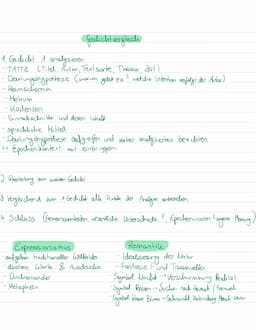 Gedichtvergleich
1 Gedicht 1 analysieren
- TATTE (Titel, Autor, Textsorte, Thema, Zeit)
- Deutungshypothese (worum geht es? welche Intention verfolgt der Autor)
- Reimschema
- Metrum
- Kadenzen
- Sinnabschnitte und deren Inhalt
- sprachliche Mittel
- Deutungshypothese aufgreifen und vorher analysiertes
↳ Epochenkontext mit einbringen
2 Überleitung zum zweiten Gedicht
3 Vergleichend zum 1 Gedicht alle Punkte der Analyse
4 Schluss (Gemeinsamkeiten, Unterschiede, Epochenwissen, eigene Meinung)
Expressionismus
- aufgeben traditioneller Weltbilder
- düstere Worte & Ausdrücke
- Metaphern
Romantik
- Idealisierung der Natur
- Fantasie und Traumwelten
- Symbol Nacht → Verschwimmung Realität
- Symbol Reisen → Suche nach Heimat / Fernweh
- Symbol blaue Blume → Sehnsucht, Verbindung Mensch-Natur